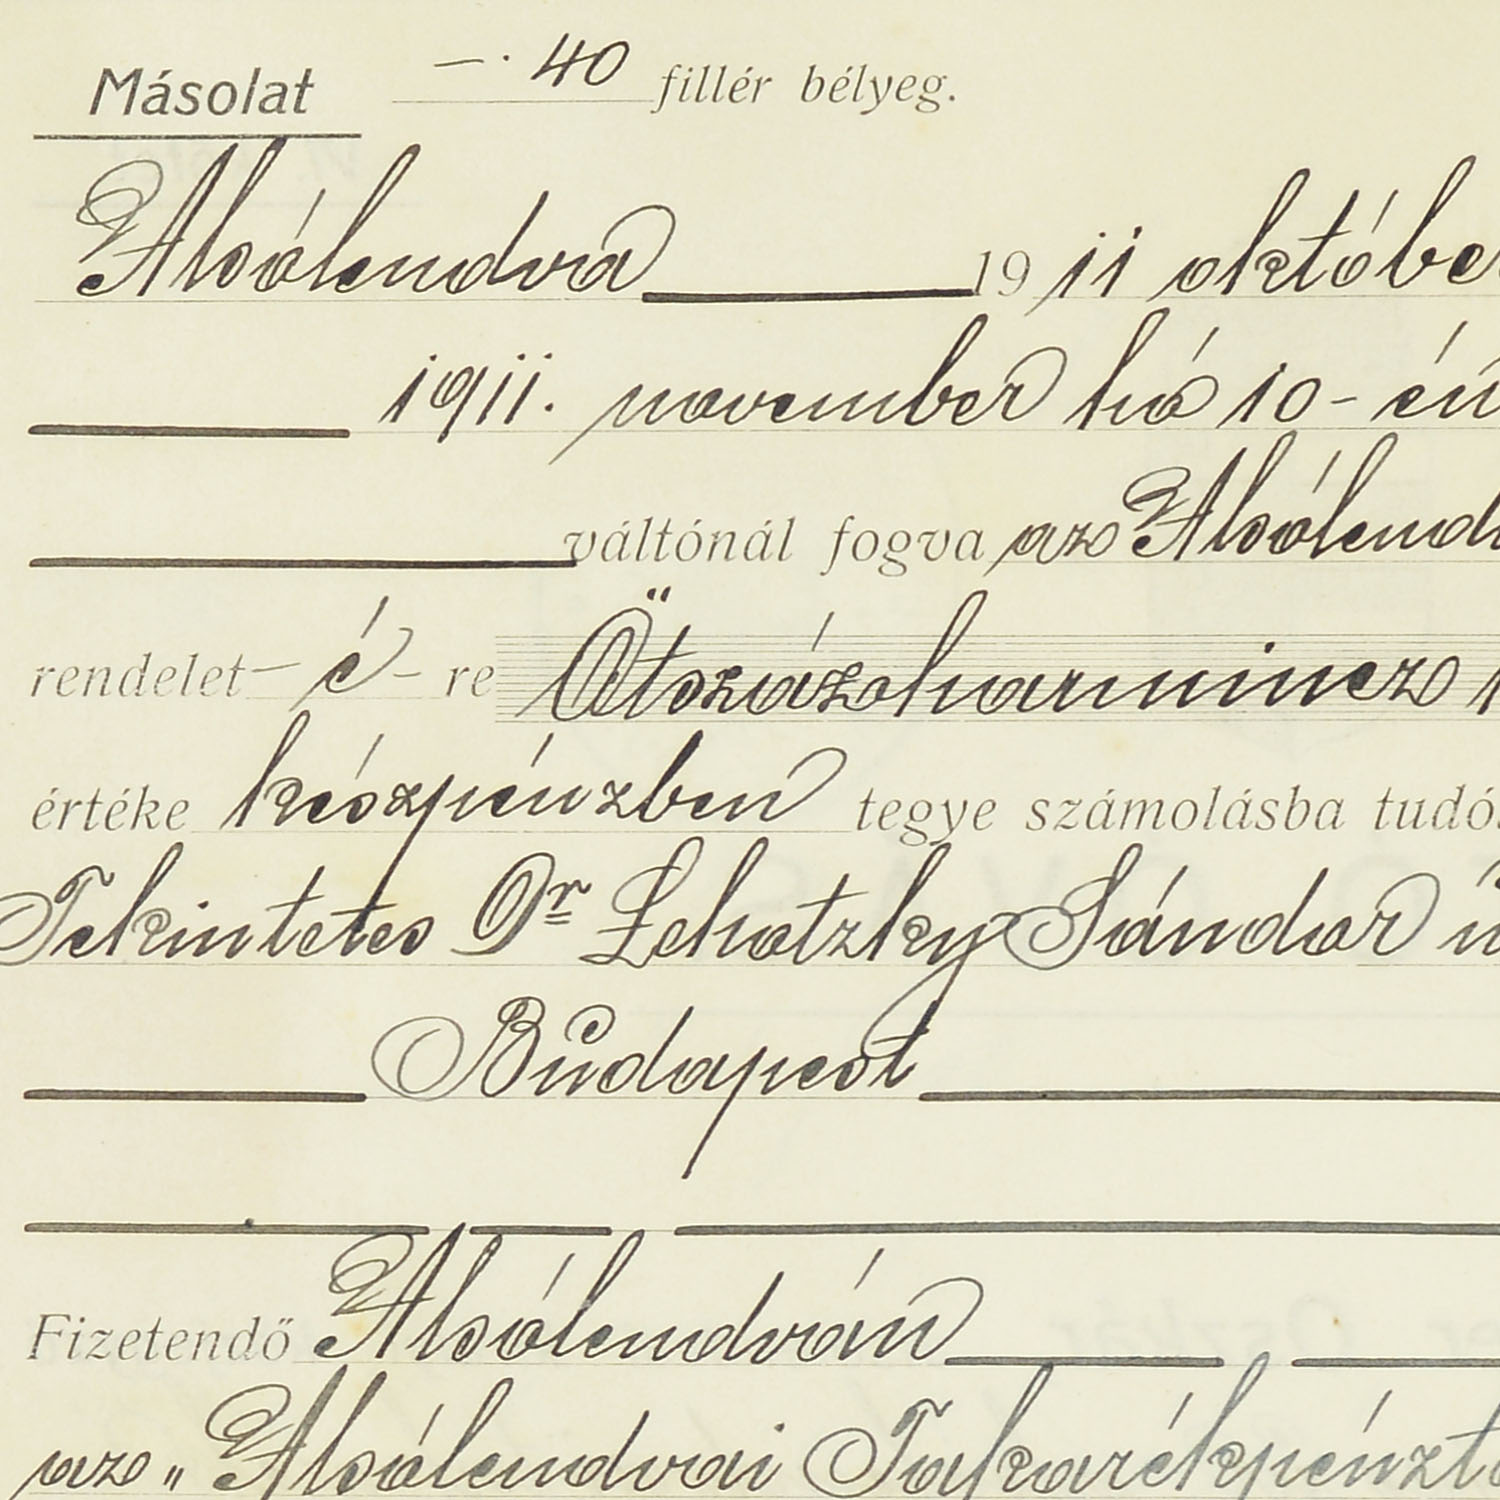 Másolat —·40 fillér bélyeg.
Alsólendva 1911 októbe
1911. november hó 10-én
váltónál fogva az Alsólend
rendelet–é–re Ötszázharmincz
értéke készpénzben tegye számolásba tudós
Tekintetes Dr Lehotzky Sándor ú
Budapest
Fizetendő Alsólendván
az „Alsólendvai Takarékpénzt